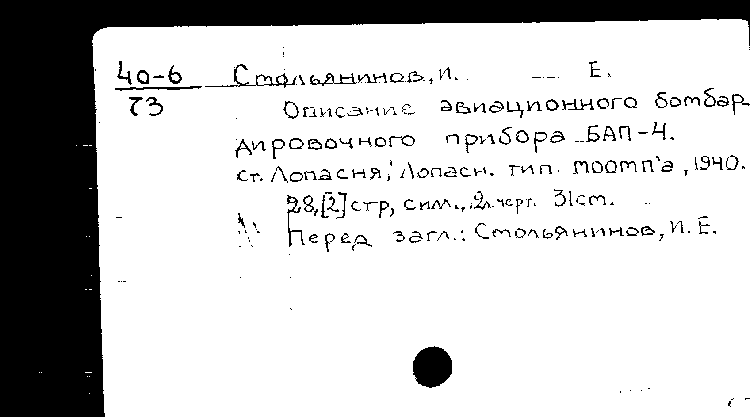 40-6 Стольянинов, И. Е.
73 Описание авиационного бомбар
дировочного прибора БАП-4.
ст. Лопасня, Лопасн. тип. моотп'а, 1940.
28,[2] стр, сим., 2л.черт. 31см.
Перед загл.: Стольянинов, И. Е.